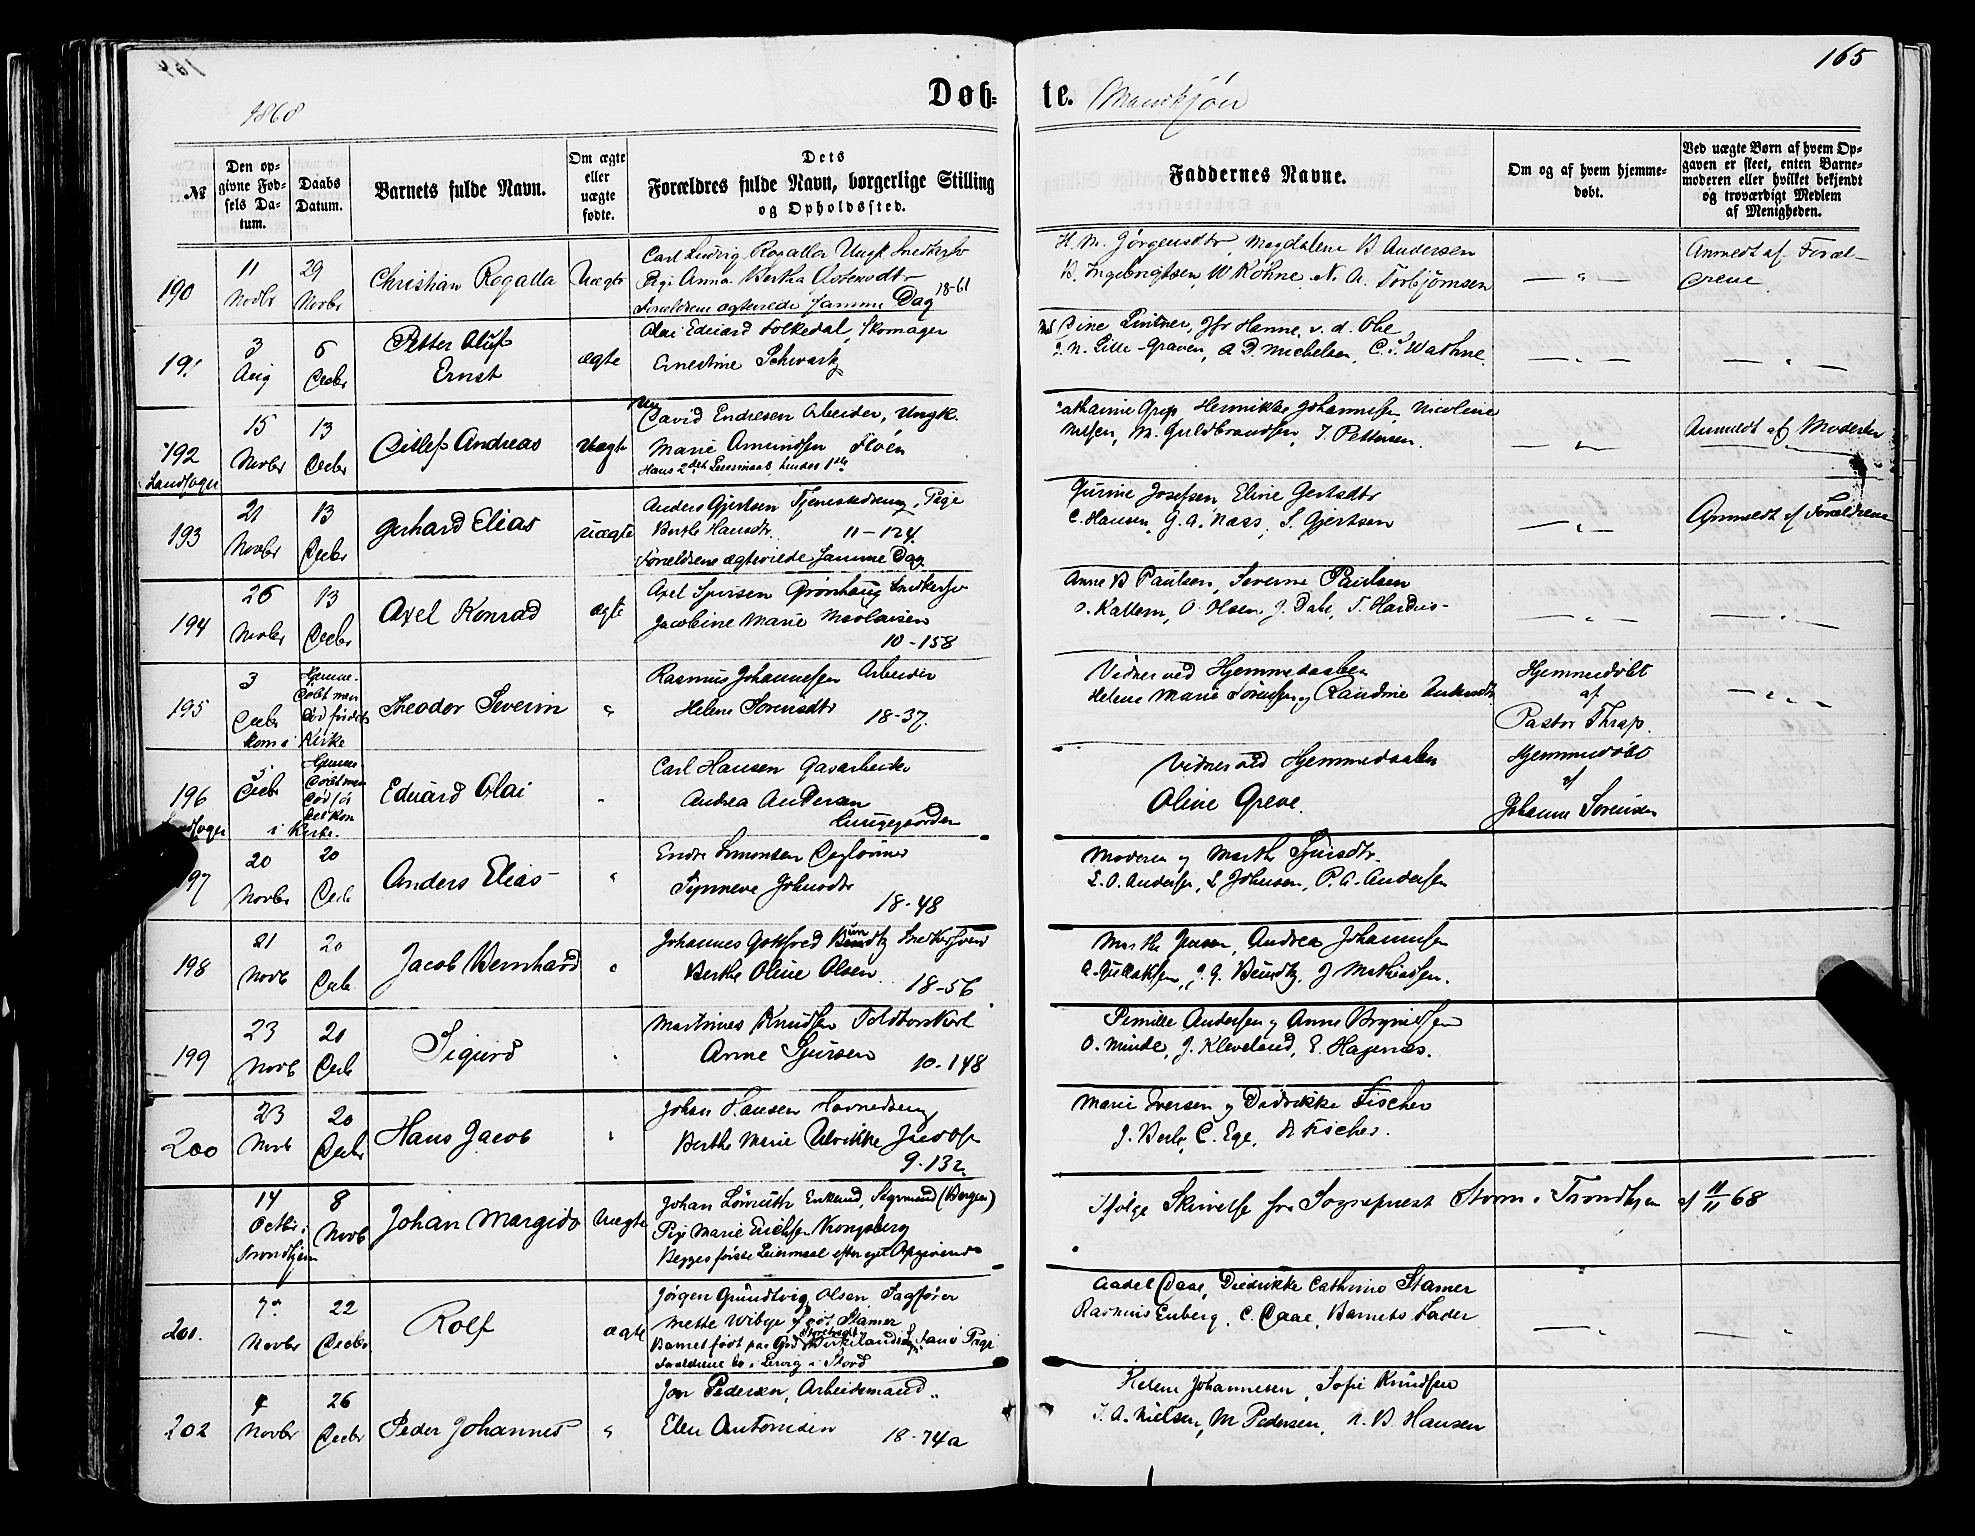 165
1868
Døb- te. Mandkjön
№
Den op-
givne Fød-
sels Da-
tum.
Daabs
Datum.
Barnets fulde Navn.
Om ægte
eller
uægte
fødte.
Dets
Forældres fulde Navn, borgerlige Stilling
og Opholdssted.
Faddernes Navne.
Om og af hvem hjemme-
døbt.
Ved uægte Børn af hvem Op-
gaven er skeet, enten Barne-
moderen eller hvilket bekjendt
og troværdigt Medlem
af Menigheden.
190
11
Novbr
29
Novbr
Christian Rogalla
Uægte
Carl Ludvig Rogalla Ungk Snedkersv
Pige Anna Bertha
Forældrene ægteviede samme Dag 18-61
H. M. Jörgensdtr, Magdalene B Andersen
B. Ingebrigtsen, W Köhne, N. A. Torbjörnsen
Anmeldt af Foræl-
drene
191
3
Aug
6
Decbr
Petter Oluf
Ernst
ægte
Olai Eduard Folkedal, Skomager
Ernestine Schwartz
Sine Lintner, Jfr Hanne v. d. Ohe
J. N. Lille-Graven, A D Michelsen, C. S. Wathne
192
Landsogn
15
Novbr
13
Decbr
Ditlef Andreas
Uægte
David Endresen Arbeider, Ungk.
Marie Amundsen Floen
Hans 2det Leiermaal hendes 1ste
Catharine Gryp, Hennikke Johannesen, Nicoline
Nilsen, M. Guldbrandsen, T. Pettersen
Anmeldt af Moderen
193
21
Novbr
13
Decbr
Gerhard Elias
uægte
Anders Gjertsen Tjenestedreng, Pige
Berthe Hansdtr. 11-124
Forældrene ægteviede samme Dag
Gurine Josefsen, Eline Gertsdtr
C. Hansen, G. A. Næss, S. Gjertsen
Anmeldt af Forældrene
194
26
Novbr
13
Decbr
Axel Konrad
ægte
Axel Sjursen Grönhaug Snedkersv
Jacobine Marie Nicolaisen
10-158
Anne B Paulsen, Severine Paulsen
O. Kattem, O. Olsen, J. Dahl, T.
195
3
Decbr
Hjemme-
döbt men
död förend
kom i Kirke
Theodor Severin
Rasmus Johannesen Arbeider
Helene Sorensdtr 18-37.
Vidner ved Hjemmedaaben
Helene Marie Sörensen og Randine
Hjemmedöbt
af
Pastor Thrap.
196
5
Decbr
Hjemme-
döbt men
död för
det kom
i Kirke.
Eduard Olai
Carl Hansen Gasarbeider
Andrea Andersen
Lungegaarden
Vidner ved Hjemmedaaben
Oline Greve.
Hjemmedöbt
af
Johanne Sörensen
197
20
Novbr
20
Decb
Anders Elias
Endre Simonsen
Synneve Johnsdtr
18-48
Moderen og Marthe Sjursdtr.
L. O. Andersen, L Johnsen, P. A. Andersen
198
21
Novb
20
Decb
Jacob Bernhard
Johannes Gotfred Snedkersvend
Berthe Oline Olsen
18-56
Marthe Jensen, Andrea Johannesen
J. Mathiassen.
199
23
Novb
20
Decb
Sigurd
Martinus Knudsen Toldbodkarl
Anne Sjursen 10.148
Pernille Andersen og Anne Brynildsen
O. Minde, J. Kleveland, E. Hagenæs.
200
23
Novb
20
Decbr
Hans Jacob
Johan Hansen Havnedreng
Berthe Marie Ulrikke Jacobsen
9-132
Marie Iversen og Didrikke Fischer
J. Berle, C. Ege, Fischer.
14
Octbr.
Trondhjem
8
Novb
Johan Margido
Uægte
Johan Enkemd, Styrmand (Bergen)
Pige Marie Erichsen Kongsberg
Begges förste Leiermaal efter eget Opgivende
Ifölge Skrivelse fra Sognepræst Storm i Trondhjem af 11/11 68
201.
7de
Novbr
22
Decbr
Rolf
ægte
Jörgen Grundtvig Olsen, Sagförer
Mette Wibye föd Stamer
Barnet födt paa
Forældrene bo i Lervig i Stord
Aadel Daae, Diedrikke Cathrine Stamer
Rasmus Enberg, C. Daae, Barnets Fader
202
4
Novbr
26
Decbr
Peder Johannes
Jon Pedersen, Arbeidsmand
Elen Antonisen 18-74a
Helene Johannesen, Sofie Knudsen
T. A. Nielsen, M Pedersen, N. B Hansen